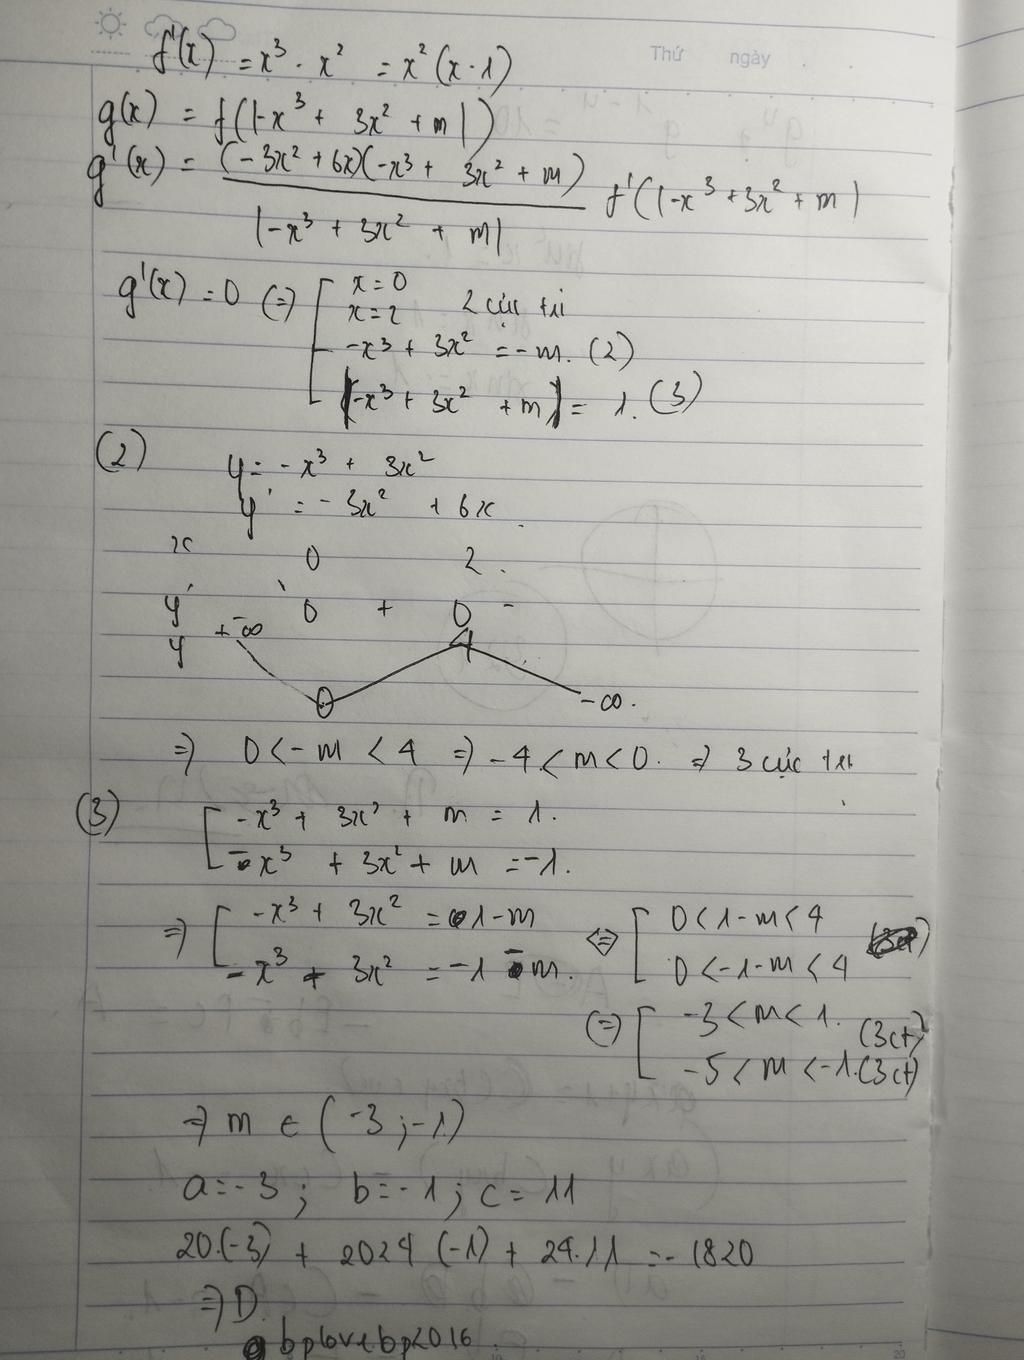 Thứ ngày
f'(x) = x³ - x² = x²(x-1)
g(x) = f(|-x³ + 3x² + m|)
g'(x) = (-3x² + 6x)(-x³ + 3x² + m) / |-x³ + 3x² + m| f'(|-x³ + 3x² + m|
g'(x) = 0 (=) [ x = 0
x = 2 2 cực trị
-x³ + 3x² = -m. (2)
|-x³ + 3x² + m| = 1. (3)
(2) y = -x³ + 3x²
y' = -3x² + 6x
x 0 2
y' - 0 + 0 -
y +∞ 0 4 -∞
=> 0 < -m < 4 => -4 < m < 0. => 3 cực trị
(3) [ -x³ + 3x² + m = 1.
-x³ + 3x² + m = -1.
=> [ -x³ + 3x² = 1-m <=> [ 0 < 1-m < 4
-x³ + 3x² = -1 - m. 0 < -1-m < 4
(=) [ -3 < m < 1. (3ct)
-5 < m < -1. (3ct)
=> m ∈ (-3; -1)
a = -3; b = -1; c = 11
20.(-3) + 2024 (-1) + 24.11 = -1820
=> D
@bplovebp2016